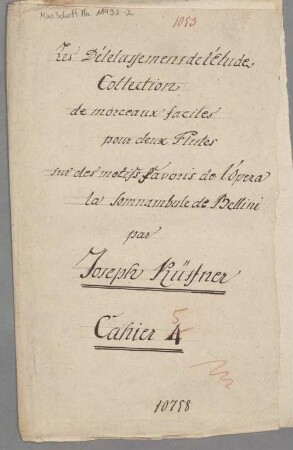 Mus. Schott Ha 10492-2
1053
Les Délassemens de l'étude
Collection
de morceaux faciles
pour deux Flutes
sur des motifs favoris de l'Opera
la Somnambule de Bellini
par
Joseph Küffner
Cahier 4 5
10758